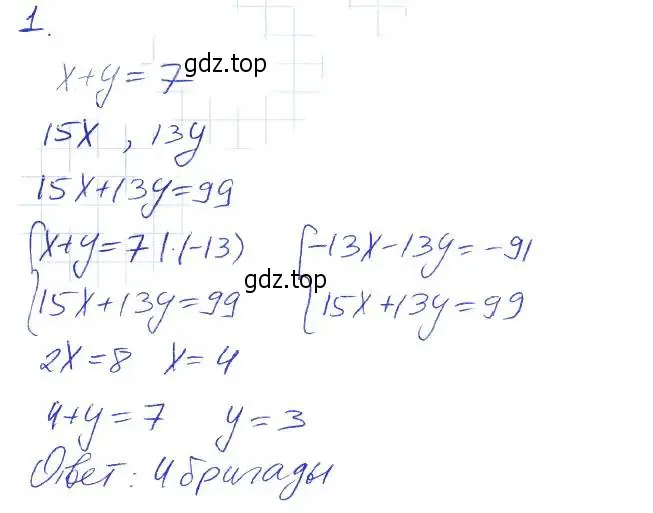 1.
gdz.top
x+y=7
15x , 13y
15x+13y=99
{x+y=7 |·(-13) {-13x-13y=-91
gdz.top
15x+13y=99 15x+13y=99
2x=8 x=4
4+y=7 y=3
Ответ: 4 бригады